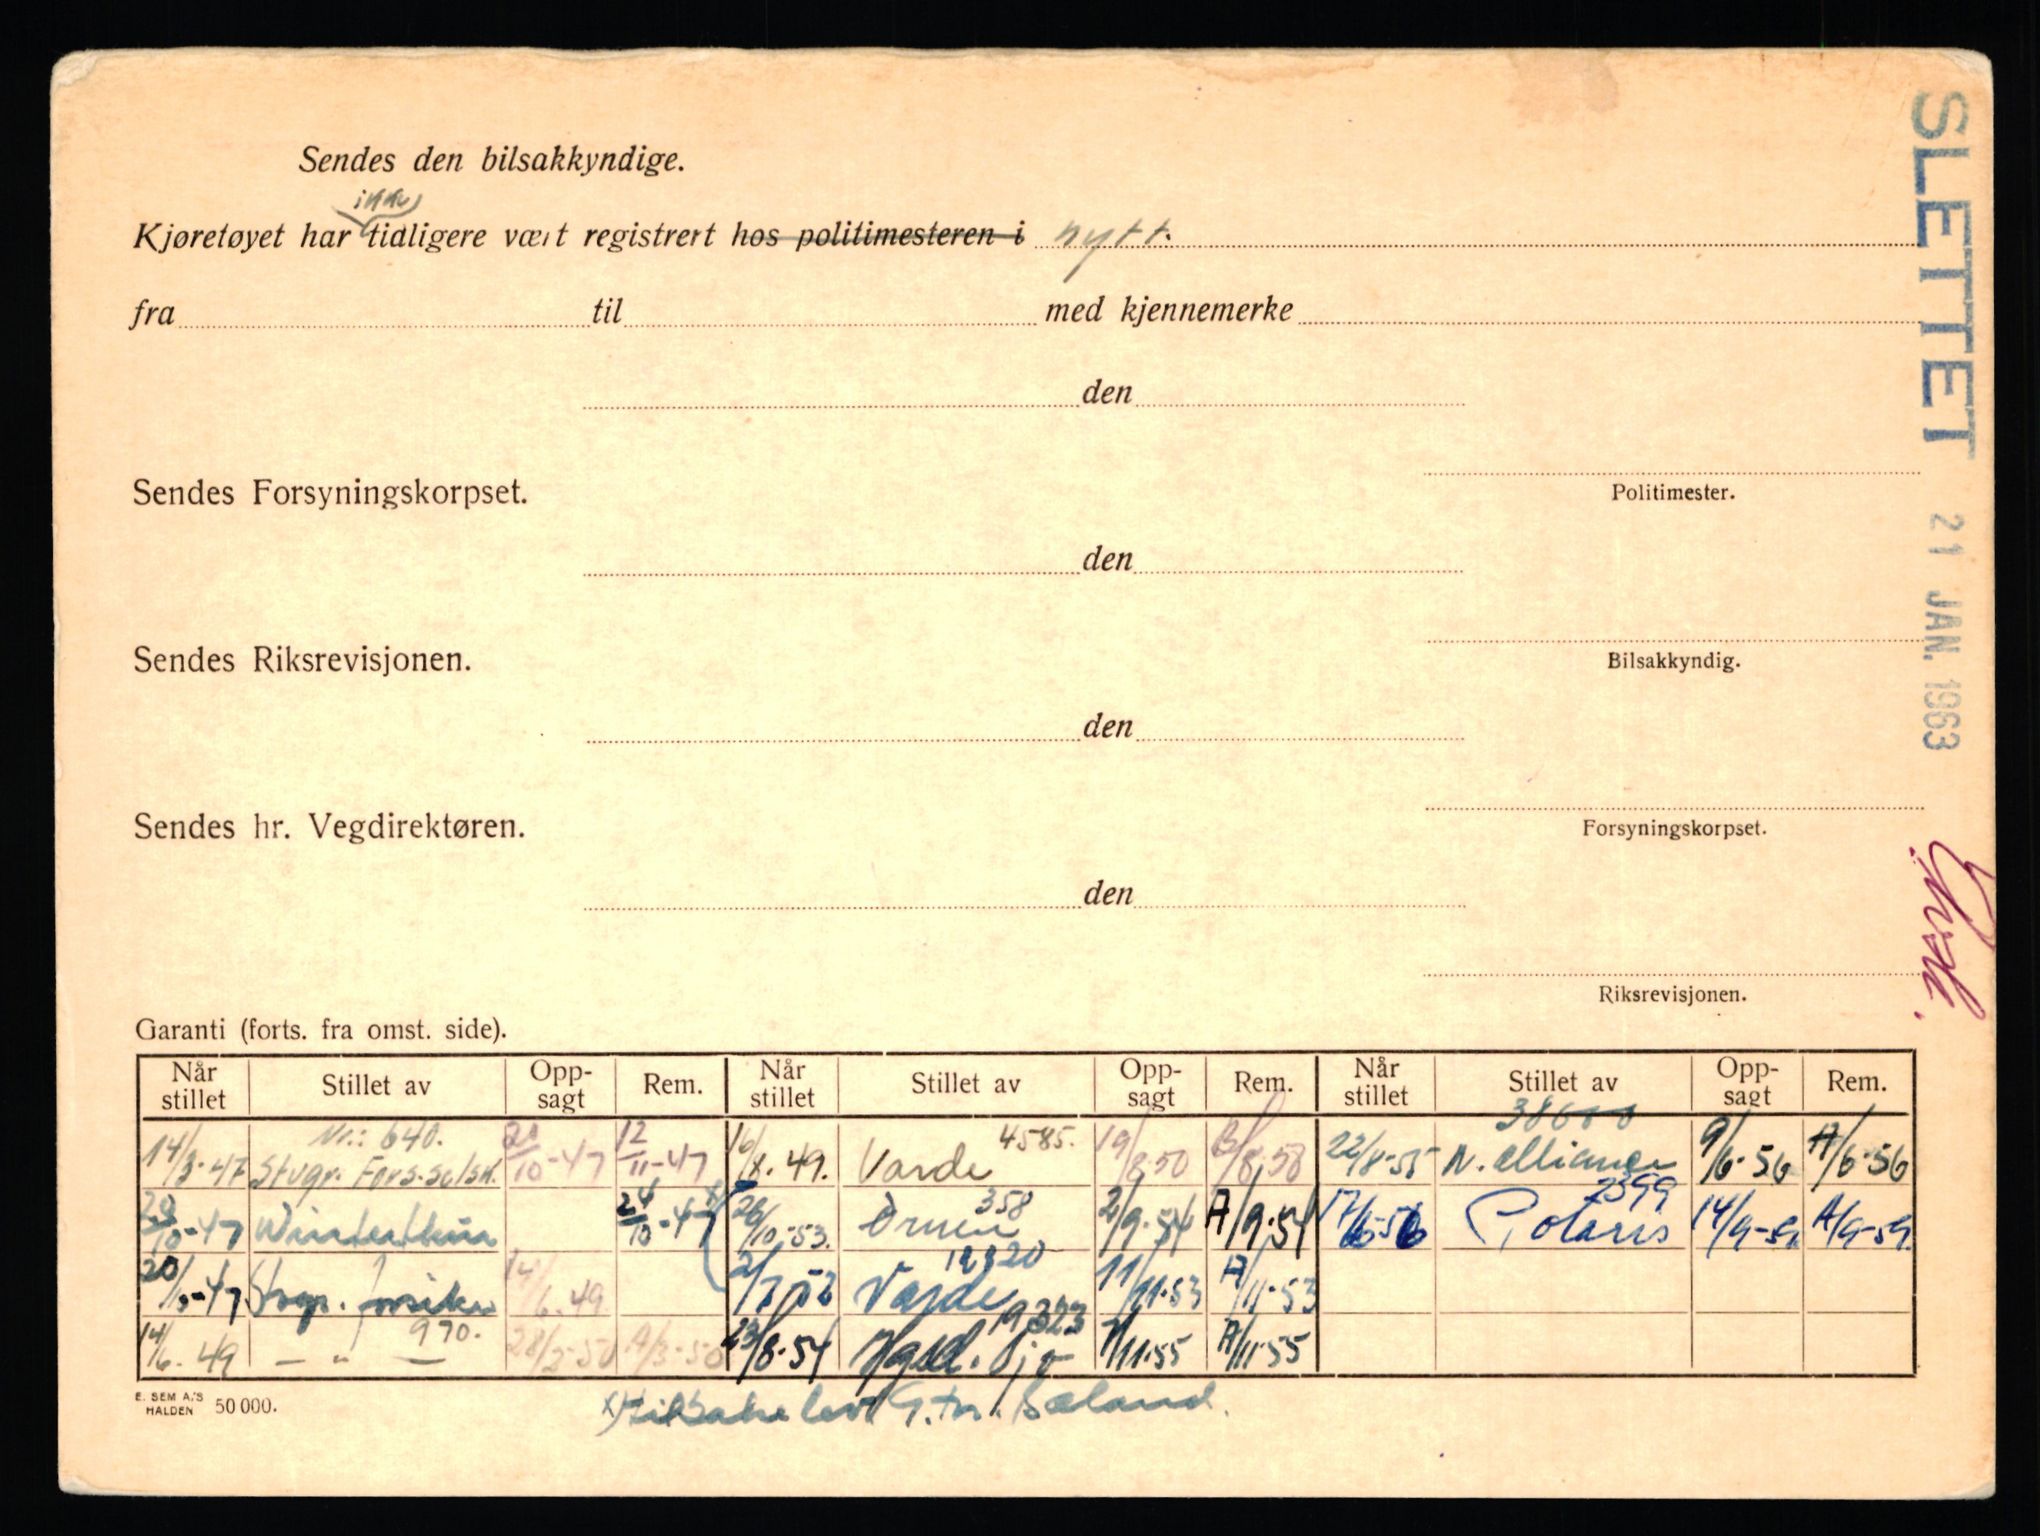 Sendes den bilsakkyndige.
ikke
Kjøretøyet har tidligere vært registrert hos politimesteren i nytt.
fra til med kjennemerke
den
Politimester.
Sendes Forsyningskorpset.
den
Bilsakkyndig.
Sendes Riksrevisjonen.
den
Forsyningskorpset.
Sendes hr. Vegdirektøren.
den
Riksrevisjonen.
SLETTET 21 JAN. 1963
Garanti (forts. fra omst. side).
Når stillet Stillet av Opp-sagt Rem. Når stillet Stillet av Opp-sagt Rem. Når stillet Stillet av Opp-sagt Rem.
14/3-47 Nr.: 640. Stvgr. Fors.selsk. 20/10-47 12/11-47 16/8.49. Varde 4585. 19/8.50 22/8-55 N. Alliance 38600 9/6-56 A/6-56
20/10-47 Winterthur 24/10-47 x) 26/10-53. Ørnen 358 2/9-54 A/9-54 17/6-56 Polaris 2399 14/9-59. A/9-59.
20/10-47 Stvgr. forsikr. 14/6.49 2/7 52 Varde 12820 11/11-53 A/11-53
14/6.49 — " — 970. 28/2-50 A/3-50 23/8-54 19323 1/11-55 A/11-55
x) tilbakelev. G. tn. Sæland.
E. SEM A/S HALDEN 50 000.